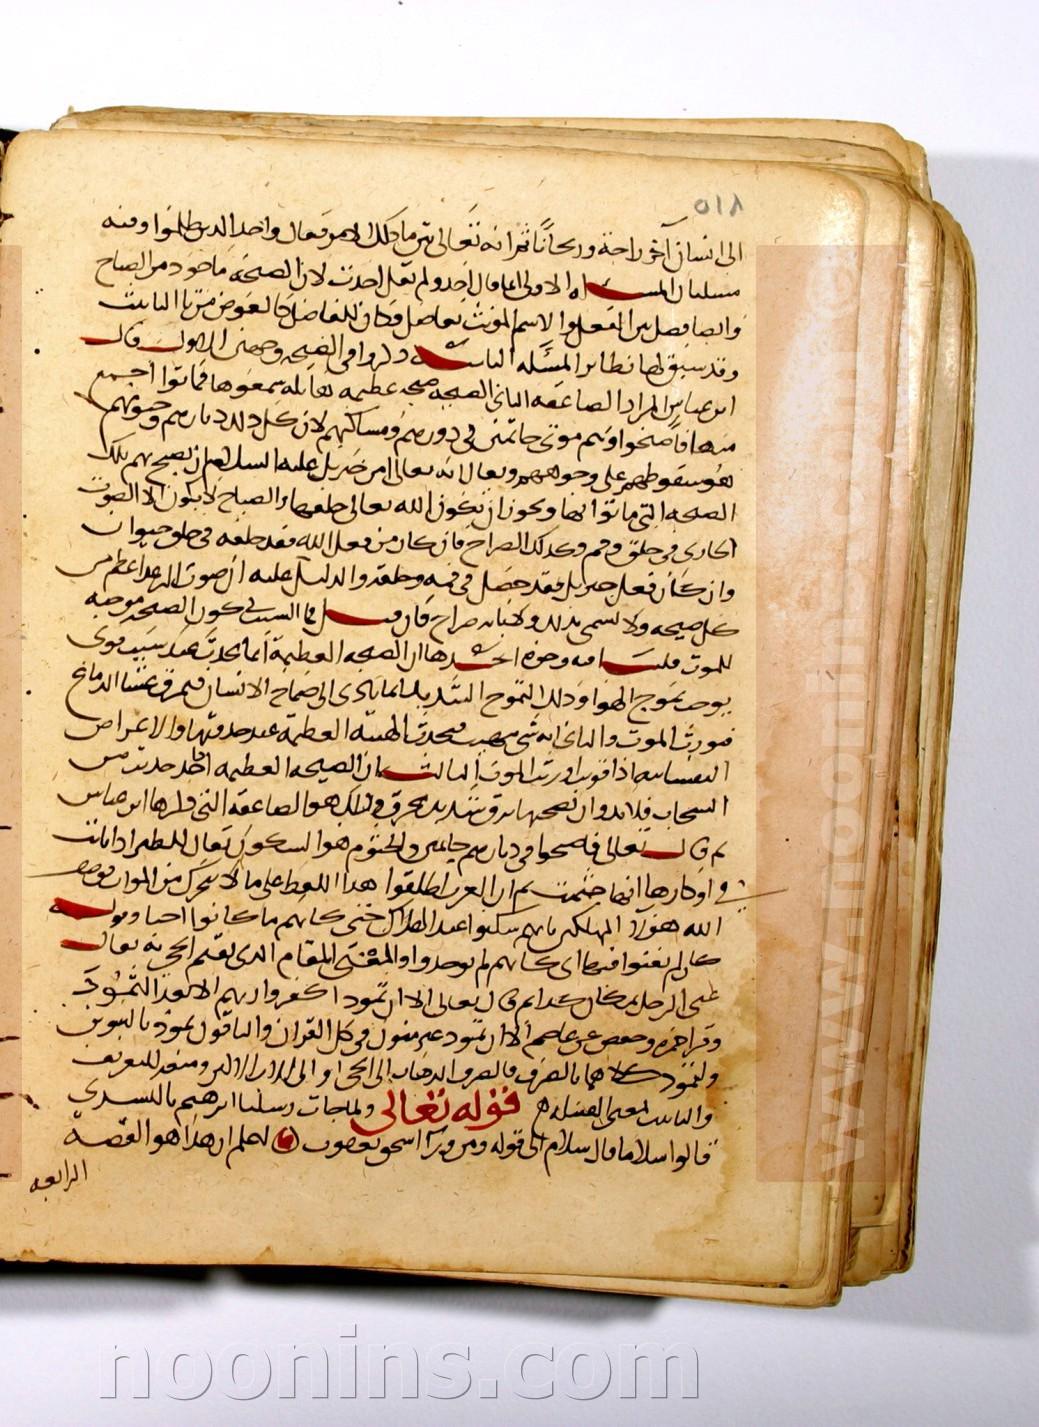 ٥١٨
الى انسان آخر راحة وريحانا ثم انه تعالى بين ما ذلك الامر فقال واخذ الذين ظلموا وفيه
مسلتان المسئله الاولى انما قال اخذ ولم يقل اخذت لان الصيحة ماخوذ من الصياح
وايضا فصل بين الفعل والاسم المونث بفاصل فكان الفاصل كالعوض من تا التانيث
وقد سبق لها نظائر المسئله الثانيه ذكروا في الصيحه وجهين الاول قال
ابن عباس المراد الصاعقه الثانى الصيحه صيحه عظيمه هائله سمعوها فماتوا اجمع
منها فاصبحوا وهم موتى جاثمين في دورهم ومساكنهم
سقوطهم على وجوههم ويقال انه تعالى امر جبريل عليه السلام ان يصيح بهم تلك
الصيحه التى ماتوا بها ويجوز ان يكون الله تعالى خلقها والصياح لا يكون الا الصوت
الحادث في حلق وفم وكذلك الصراخ فان كان من فعل الله فقد خلقه في حلق حيوان
وان كان فعل جبريل فقد حصل في فمه وحلقه والدليل عليه ان صوت الرعد اعظم من
كل صيحه ولا يسمى بذلك ولا بانه صراخ فان قيل فما السبب في كون الصيحه موجبه
للموت قلنا فيه وجوه احدها ان الصيحه العظيمة انما تحدث عند سبب قوى
يوجب تموج الهوا وذلك التموج الشديد ربما يتادى الى صماخ الانسان فيمزق غشا الدماغ
فيورث الموت والثانى انه شى مهيب فيحدث الهيبه العظيمة عند حدوثها والاعراض
النفسانيه اذا قويت اورثت الموت الثالث ان الصيحه العظيمه اذا حدثت من
السحاب فلا بد وان يصحبها برق شديد محرق وذلك هو الصاعقه التى ذكرها ابن عباس
ثم قال تعالى فاصبحوا في ديارهم جاثمين والجثوم هو السكون يقال للطير اذا باتت
في اوكارها انها جثمت ثم ان العرب اطلقوا هذا اللفظ على ما لا يتحرك من الموات فوصف
الله هؤلاء المهلكين بانهم سكنوا عند الهلاك حتى كانهم ما كانوا احيا وقوله
كان لم يغنوا فيها اى كانهم لم يوجدوا والمغنى المقام الذى يقيم الحى به يقال
غنى الرجل بمكان كذا ثم قال تعالى الا ان ثمود اكفروا ربهم الا بعدا لثمود
وقرا حمزه وحفص عن عاصم الا ان ثمود غير منون في كل القران والباقون ثمودا بالتنوين
ولثمود كلاهما بالصرف والصرف للذهاب الى الحى او الى الاب الاكبر ومنعه للتعريف
والتانيث بمعنى القبيله ه قوله تعالى ولما جات رسلنا ابرهيم بالبشرى
قالوا سلاما قال سلام الى قوله ومن ورا اسحق يعقوب اعلم ان هذا هو القصة
الرابعه
www.noonins.com
noonins.com